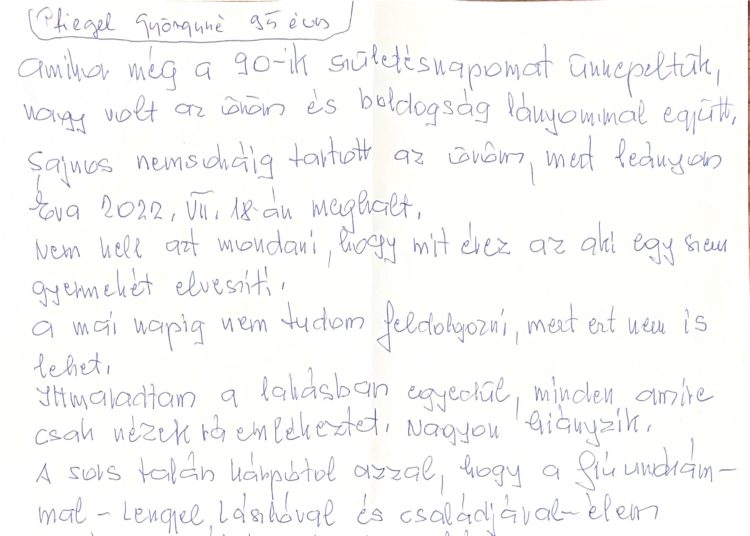 Pfiegel Györgyné 95 éves
amikor még a 90-ik születésnapomat ünnepeltük,
nagy volt az öröm és boldogság lányommal együtt.
Sajnos nemsokáig tartott az öröm, mert leányom
Éva 2022. VII. 18-án meghalt.
Nem kell azt mondani, hogy mit érez az aki egy szem
gyermekét elveszíti.
a mai napig nem tudom feldolgozni, mert ezt nem is
lehet.
Ittmaradtam a lakásban egyedül, minden amire
csak nézek rá emlékeztet. Nagyon hiányzik.
A sors talán kárpótol azzal, hogy a fiú unokám-
mal - Lengyel Lászlóval és családjával - élem